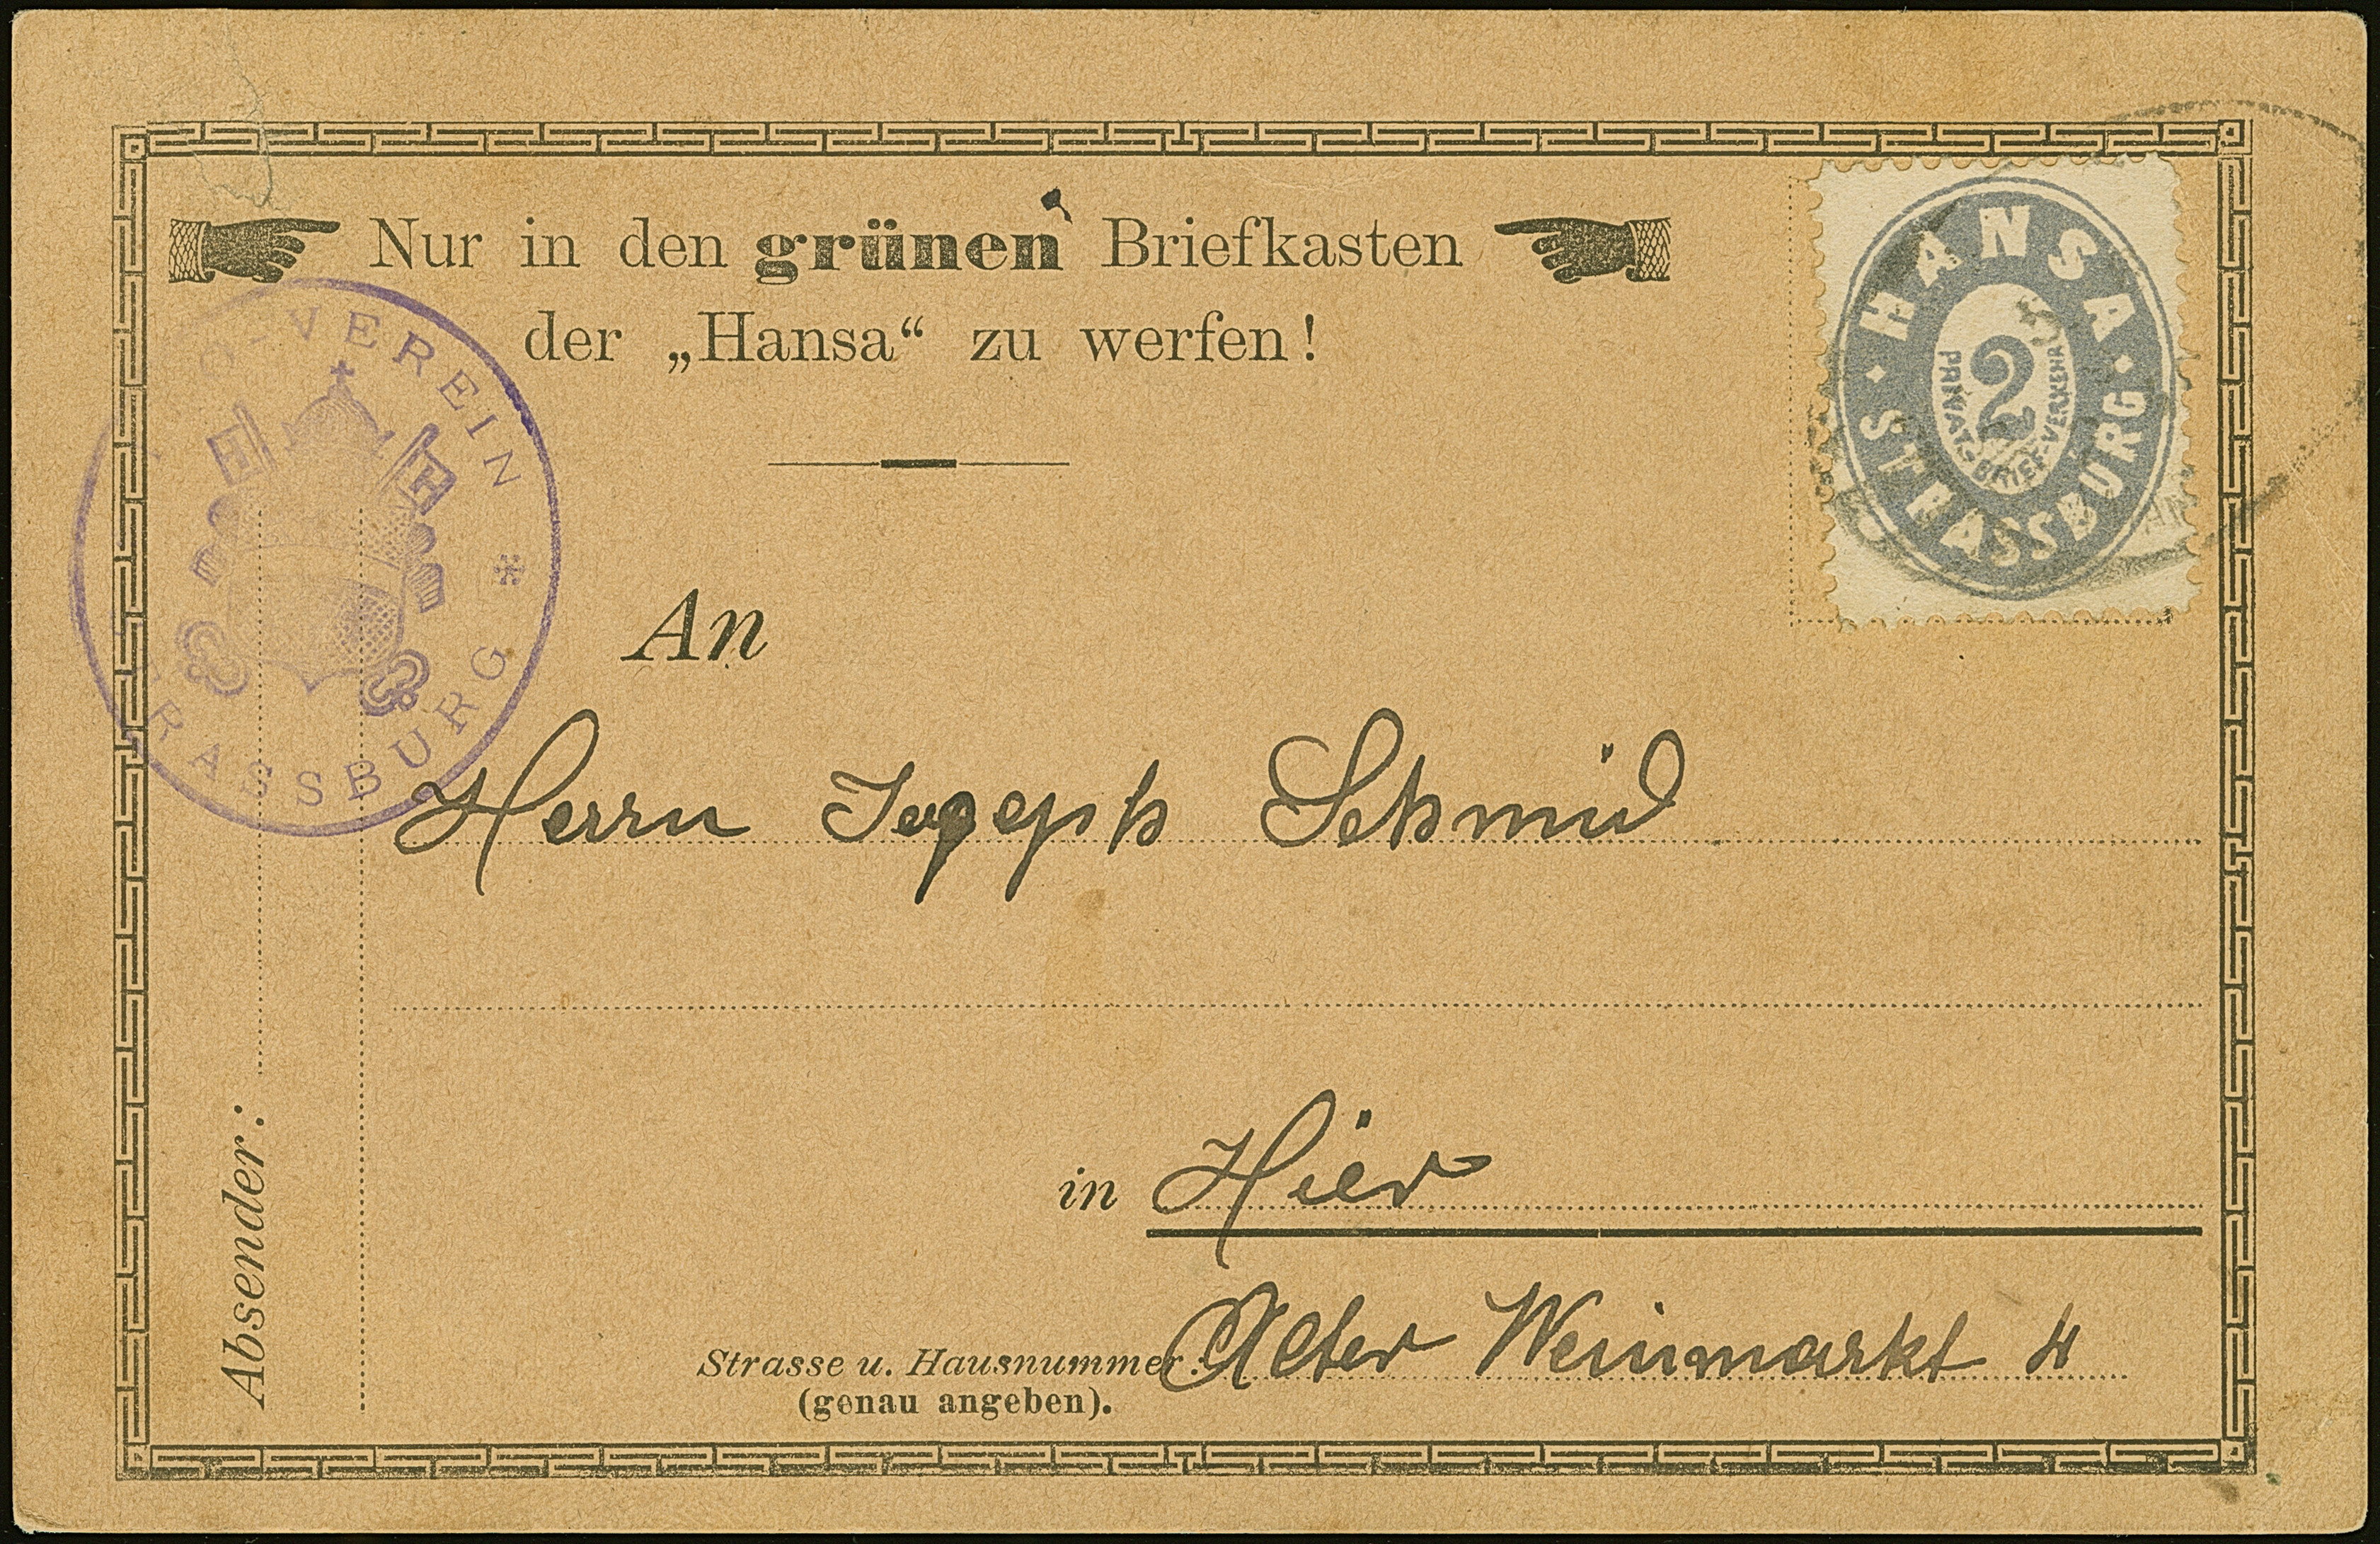 Nur in den grünen Briefkasten
der „Hansa“ zu werfen!
HANSA
STRASSBURG
2
PRIVAT-BRIEF-VERKEHR
O-VEREIN
RASSBURG
An
Herrn Joseph Schmid
in Hier
Strasse u. Hausnummer: Alter Weinmarkt 4
(genau angeben).
Absender: